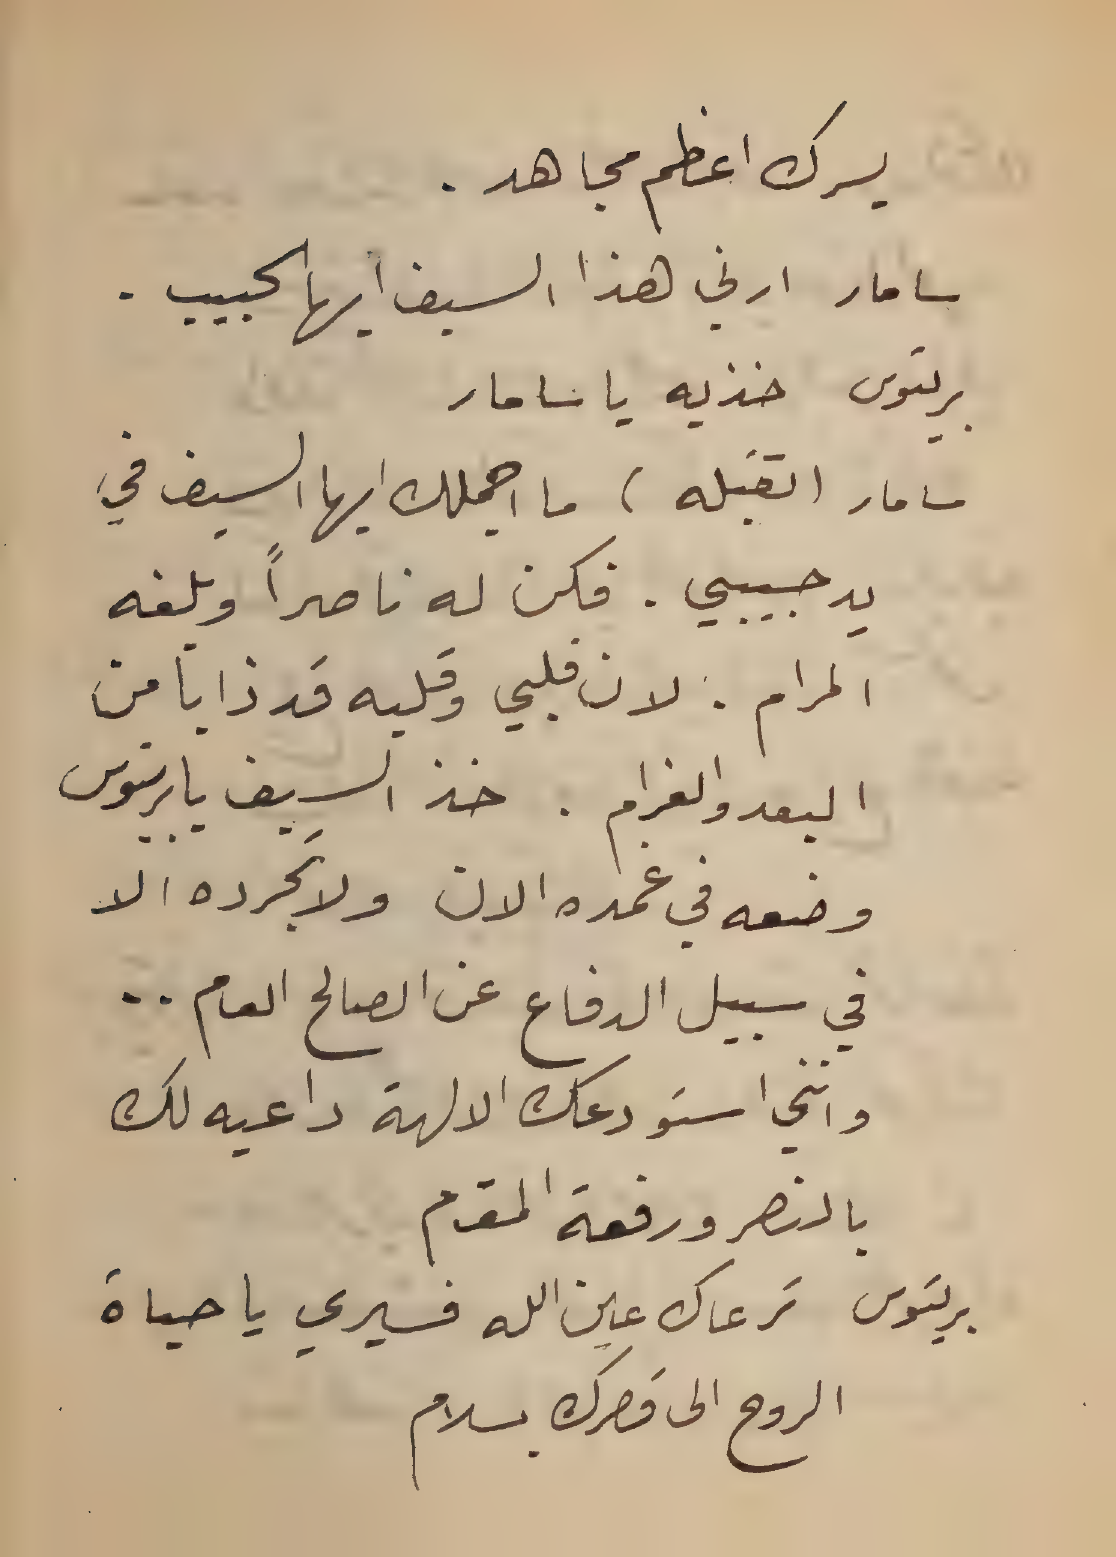 يسرك اعظم مجاهد .
سامار ارني هذا السيف ايها الحبيب .
بريتوس خذيه يا سامار
سامار (تقبله) ما اجملك ايها السيف في
يد حبيبي . فكن له ناصراً وبلغه
المرام . لان قلبي وقلبه قد ذابا من
البعد والغرام . خذ السيف يا بريتوس
وضعه في غمده الان ولا تجرده الا
في سبيل الدفاع عن الصالح العام ..
وانني استودعك الالهة داعيه لك
بالنصر ورفعة المقدم
بريتوس ترعاك عين الله فسيري يا حياة
الروح الى قصرك بسلام